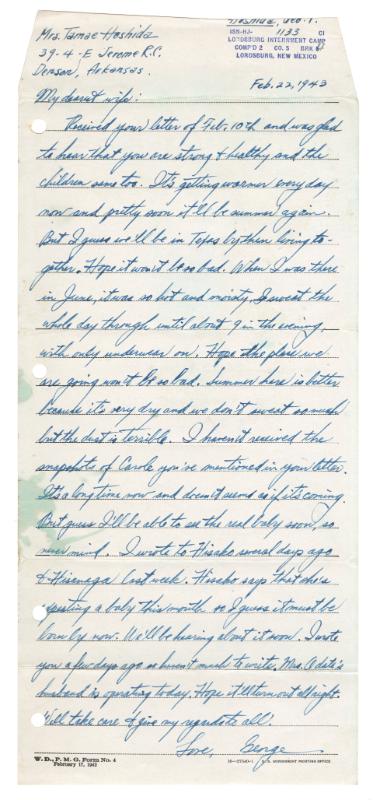 Hoshida, Geo. Y.
Mrs. Tamae Hoshida
ISN-HJ- 1133 CI
LORDSBURG INTERNMENT CAMP
39-4-E Jerome R.C.
COMP'D 2 CO. 5 BRK
Denson, Arkansas.
LORDSBURG, NEW MEXICO
Feb. 22, 1943
My dearest wife:
Received your letter of Feb. 10th and was glad
to hear that you are strong & healthy and the
children sens too. It's getting warmer every day
now and pretty soon it'll be summer again.
But I guess we'll be in Texas by then living to-
gether. Hope it won't be so bad. When I was there
in June, it was so hot and moisty, I sweat the
whole day through until about 9 in the evening,
with only underwear on. Hope the place we
are going won't be so bad. Summer here is better
because it's very dry and we don't sweat so much
but the dust is terrible. I haven't received the
snapshots of Carole you've mentioned in your letter.
It's a long time now and doesn't seem as if it's coming.
But guess I'll be able to see the real baby soon, so
never mind. I wrote to Hisako several days ago
& Hisenaga last week. Hisako says that she's
expecting a baby this month so I guess it must be
born by now. We'll be hearing about it soon. I wrote
you a few days ago so haven't much to write. Mrs. Odate's
husband is operating today. Hope it'll turn out all right.
Will take care & give my regards to all.
Love, George
W. D., P. M. G. Form No. 4
February 17, 1942
U. S. GOVERNMENT PRINTING OFFICE